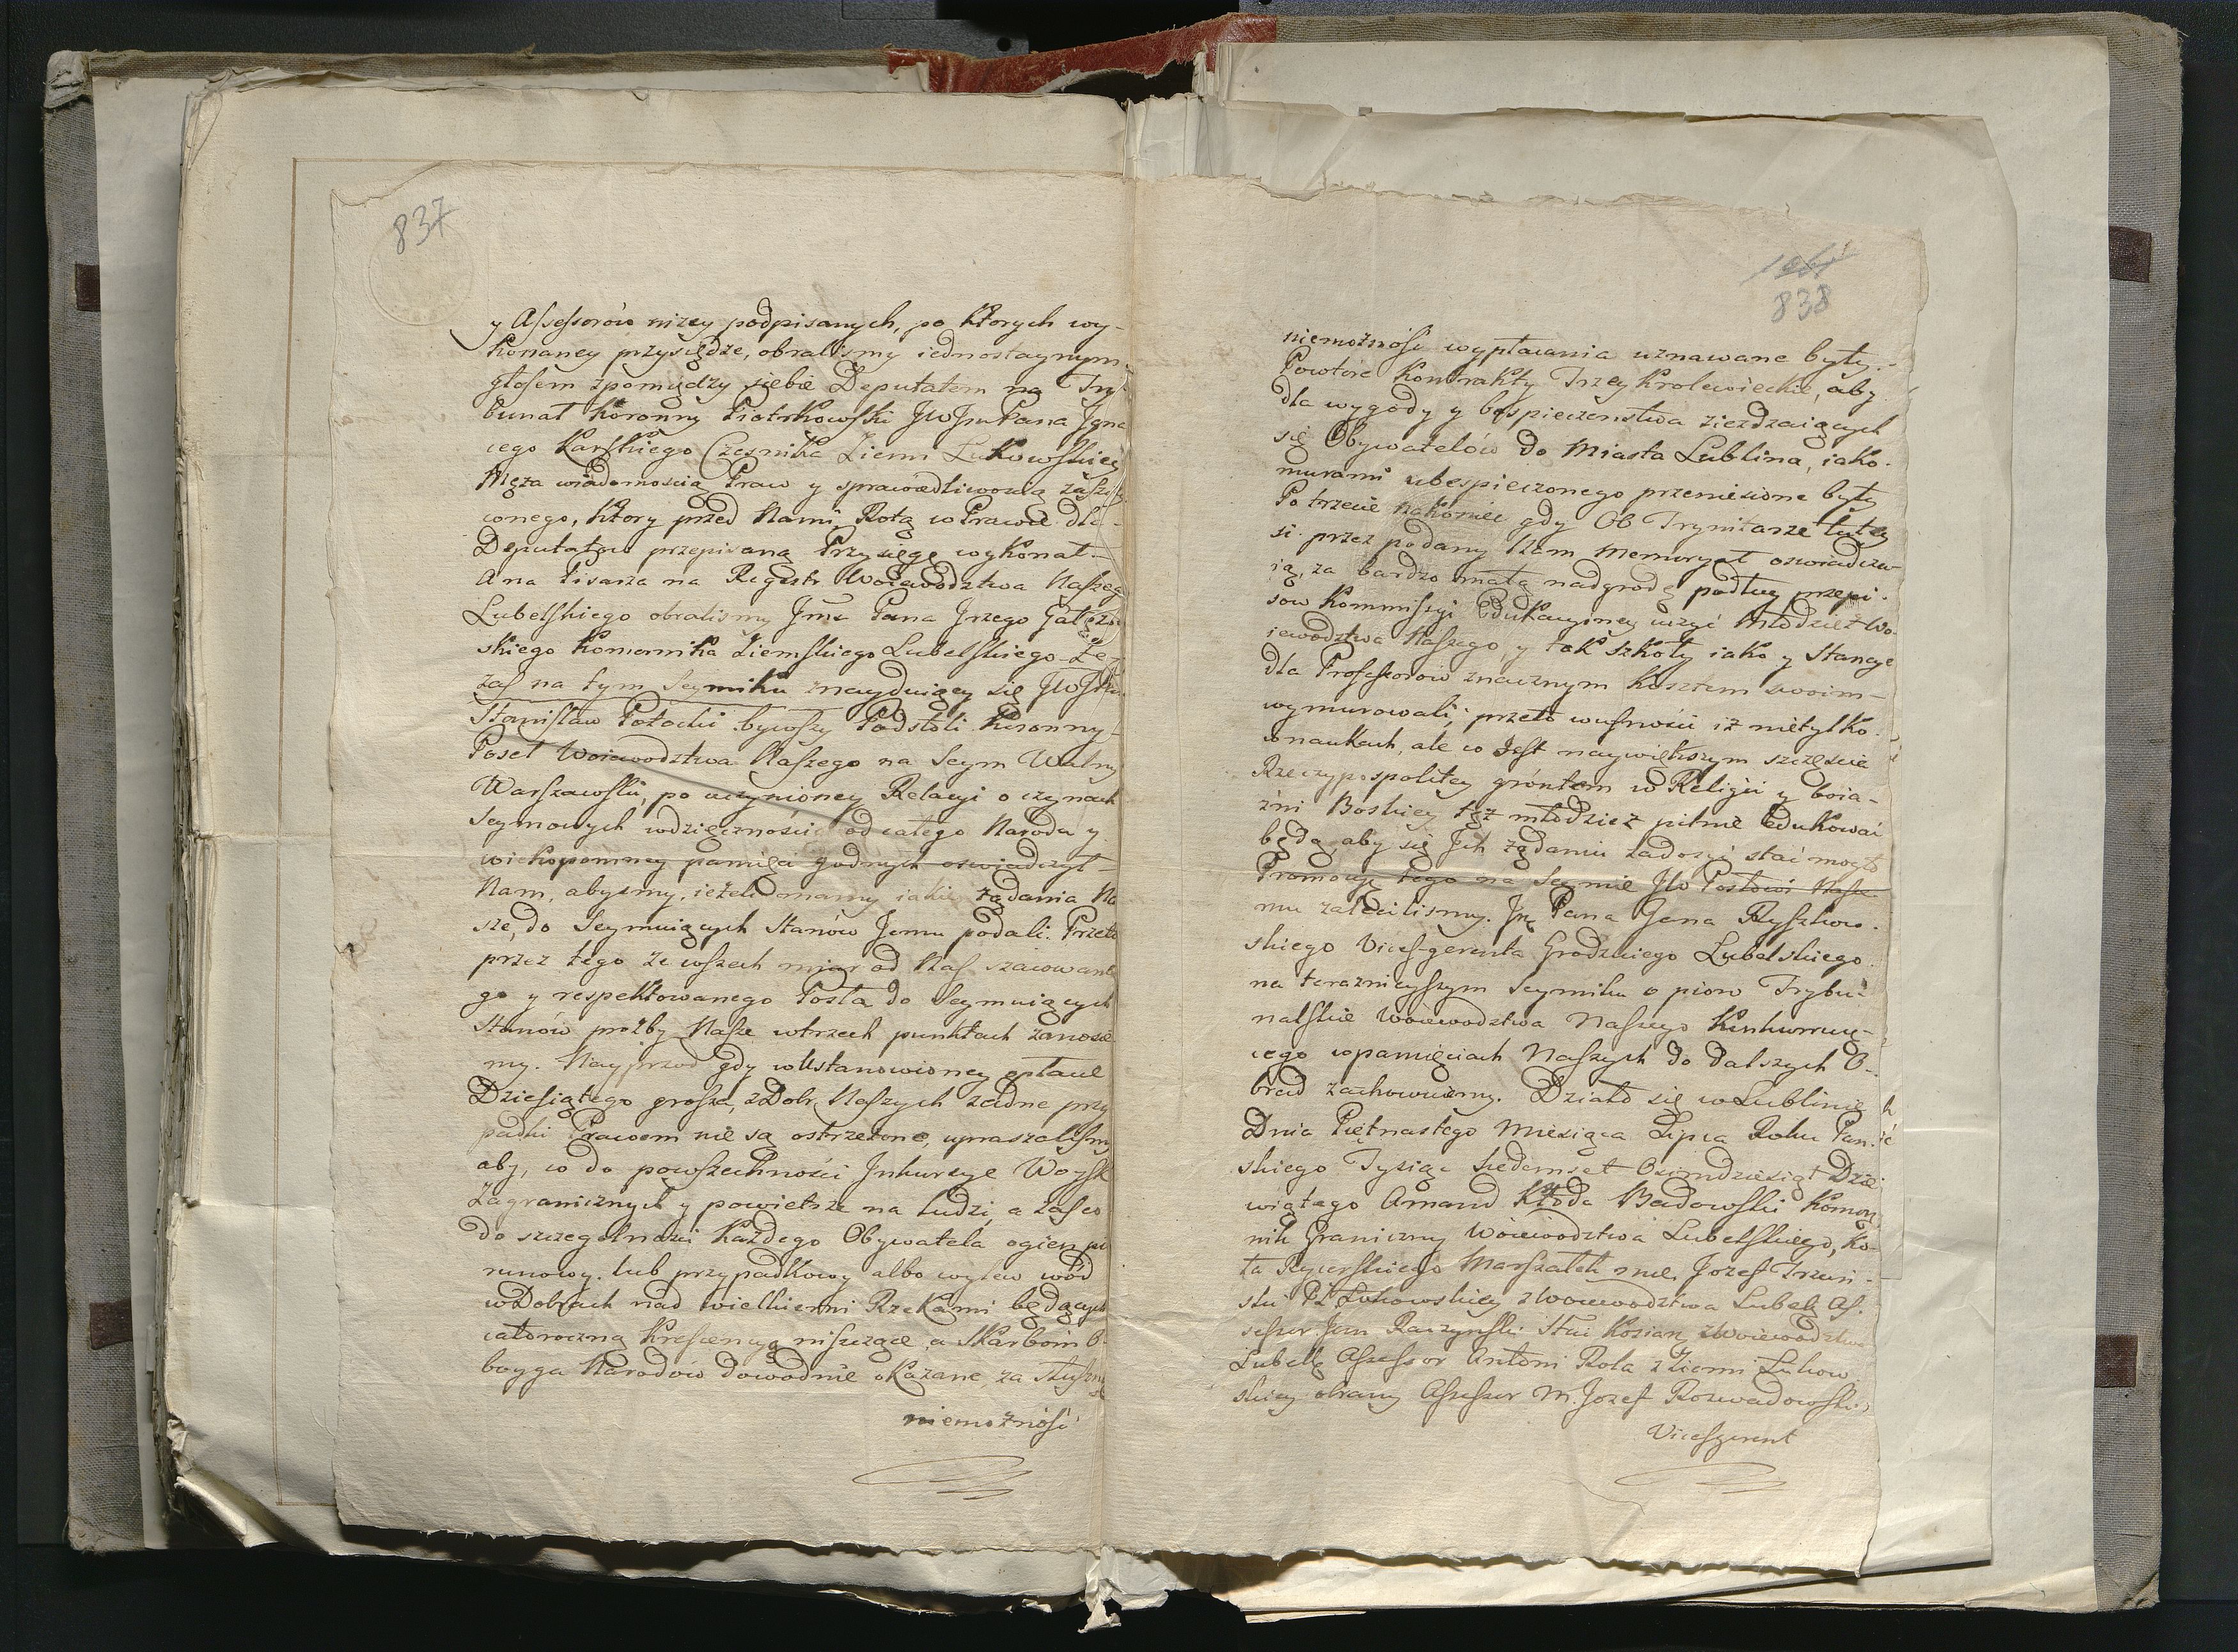 837
y Assessorów niżey podpisanych, po ktorych wy-
konaney przysiędze, obralismy iednostaynym
głosem zpomiędzy siebie Deputatem na Try-
bunał Koronny Piotrkowski Pana Igna
cego Karskiego Czesnika Ziemi Łukowskiey
Męża wiadomoscią Praw y sprawiedliwoscią
conego, ktory przed Nami Rotą w Prawie dla
Deputatow przepisaną Przysięgę wykonał.
A na Pisarza na Regestr Woiewodztwa Naszeg
Lubelskiego obralismy Jmci Pana Jrzego
skiego Komornika Ziemskiego Lubelskiego Że
zaś na tym Seymiku znayduiący się
Stanisław Potocki bywszy Podstoli Koronny
Poseł Woiewodztwa Naszego na Seym Walny
Warszawski, po uczynioney Relacyi o czynach
Seymowych wdzięczności od całego Narodu y
wiekopomney pamięci godnych oswiadczył
Nam, abysmy, ieżeli mamy iakie żądania Na
sze, do Seymuiących Stanów Jemu podali. Przeto
przez tego ze wszech miar od Nas szacowane
go y respektowanego Posła do Seymuiących
Stanów prozby Nasze wtrzech punktach zanosie
my. Nayprzod gdy w Ustanowioney opłacie
Dziesiątego grosza, z Dobr Naszych żadne przy
padki Prawem nie są ostrzeżone, upraszalismy
aby, co do powszechności Jnkursye Woysk
Zagranicznych y powietrze na ludzi, a zaś co
do szczegolności Każdego Obywatela ogien pi
runowy, lub przypadkowy albo wylew wód
w Dobrach nad wielkiemi Rzekami będących
całoroczną Krescencyą niszczące, a Skarbom O-
boyga Narodów dowodnie okazane, za słuszn
niemożność
838
niemożność wypłacania uznawane były.
Powtóre Kontrakty Trzey Krolewieckie, aby
dla wygody y bespieczenstwa zieżdzaiących
się Obywatelów do Miasta Lublina, iako
murami ubespieczonego przeniesione były
Potrzecie nakoniec gdy OO Trynitarze tutey
si przez podany Nam Memoryał oswiadcza-
ią, za bardzo małą nadgrodę podług przepi-
sow Kommissyi Edukacyiney uczyć Młodzież Wo-
iewodztwa Naszego, y tak szkoły iako y Stancye
dla Professorow znacznym kosztem swoim
wymurowali, przeto wufności iż nietylko
wnaukach, ale co Jest naywiększym szczęscia
Rzeczypospolitey gróntem w Religii y boia-
źni Boskiey tęż młodzież pilnie Edukować
będą, aby się Jch żądaniu zadosyć stać mogło
Promocyę tego na Seymie JW Posłowi Nasze
mu zaleciliśmy. Jmć Pana Jana Ryszkow-
skiego Vices-gerenta Grodzkiego Lubelskiego
na teraznieyszym Seymiku o pioro Trybu-
nalskie Woiewodztwa Naszego Konkurruią-
cego wpamięciach Naszych do dalszych O-
brad zachowuiemy. Działo się w Lublinie
Dnia Piętnastego Miesiąca Lipca Roku Pan-
skiego Tysiąc Siedemset Osimdziesiąt Dzie-
wiątego Amand Kłoda Badowski Komor
nik Graniczny Woiewodztwa Lubelskiego, Ko-
ła Rycerskiego Marszałek mp. Jozef Trzcin-
ski PZ Łukowskiey z Woiewodztwa Lubelg As-
sessor Jan Raczynski Stni Kozian z Woiewodztwa
Lubelg Assessor Antoni Rola z Ziemi Łukow
skiey obrany Assessor M. Jozef Rozwadowski
Vicesgerent